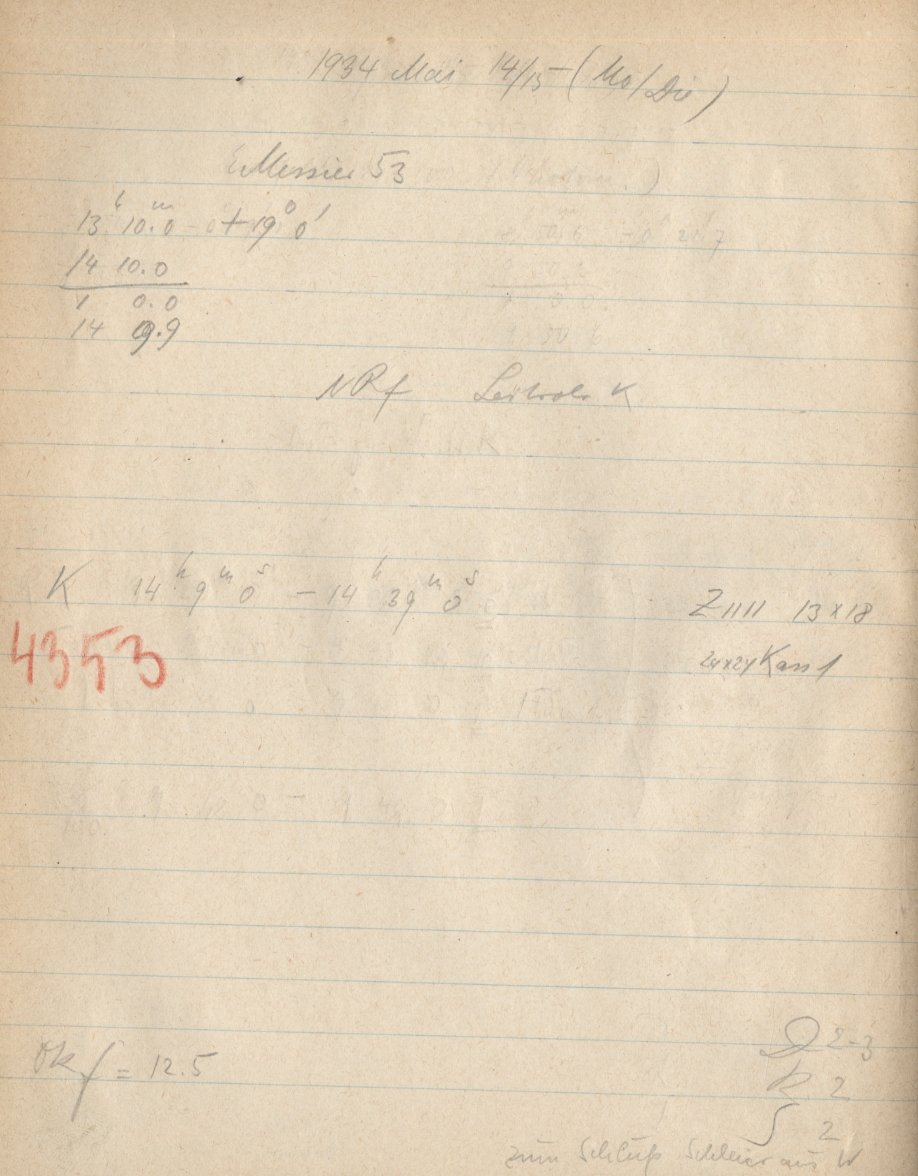 1934 Mai 14/15 (Mo/Die)
Messier 53
13h 10m.0 +19° 0'
14 10.0
1 0.0
14 9.9
NPf Leitrohr K
K 14h 9m 0s – 14h 39m 0s
Z IIII 13x18
4353
24x24 Kass 1
Okf = 12.5
D 2-3
R 2
S 2
zum Schluß Schleier aus W